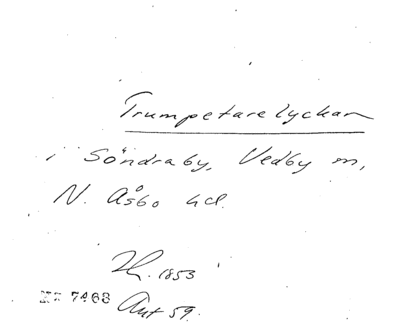 Trumpetarelyckan
i Söndraby, Vedby sn,
N. Åsbo hd.
1853
7468 Ant 59.